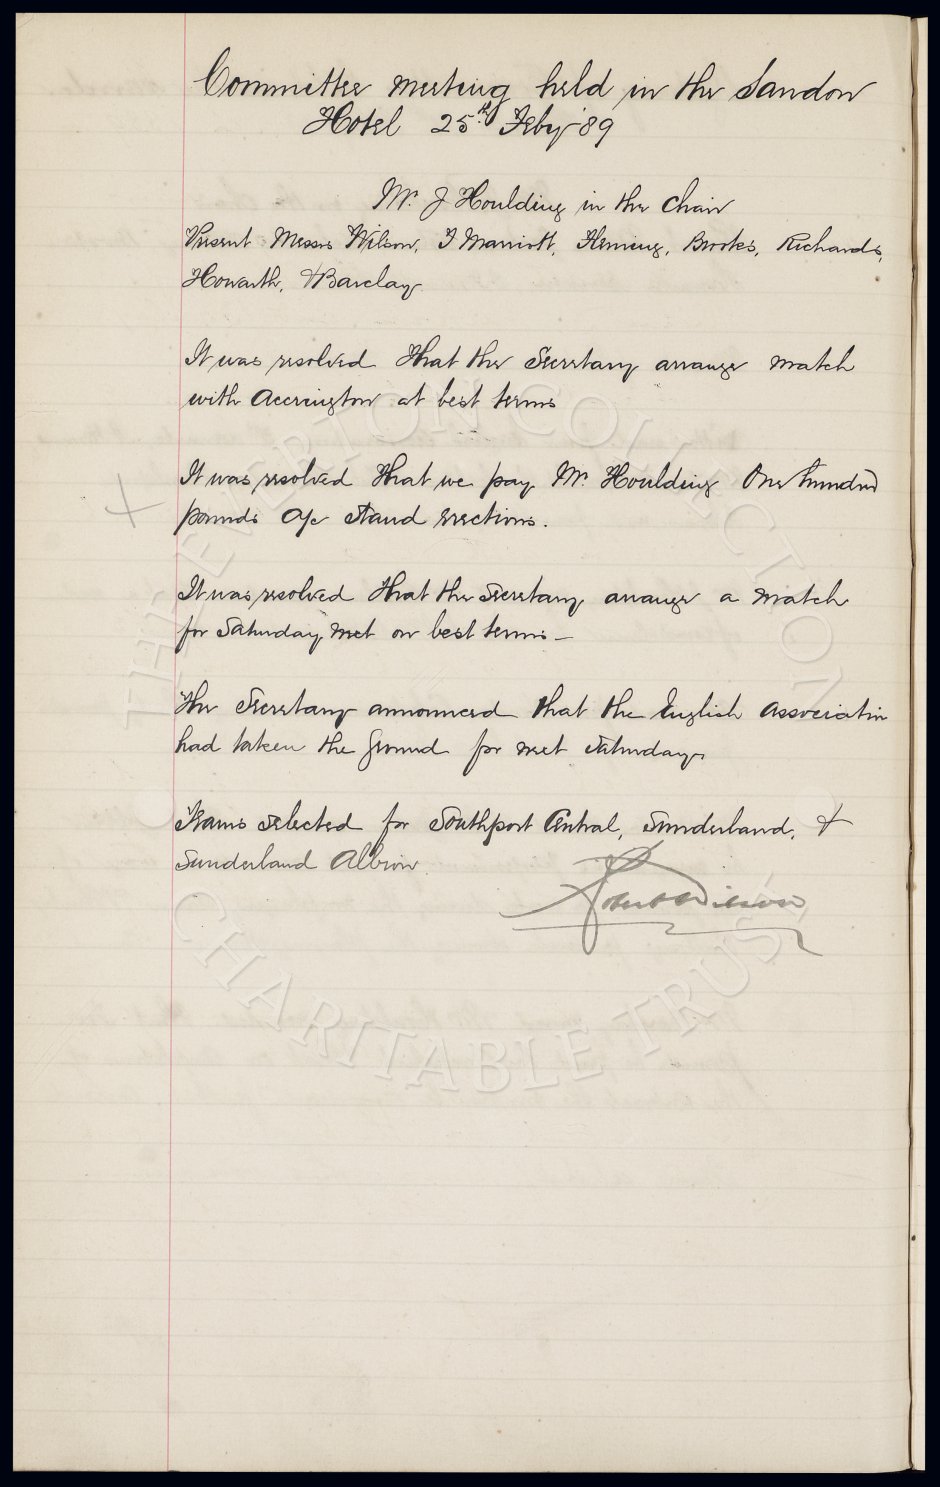 Committee meeting held in the Sandon
Hotel 25th Feby 89
Mr. J Houlding in the Chair
Present Messrs Wilson, J Marriott, Fleming, Brooks, Richards,
Howarth, & Barclay
It was resolved that the Secretary arrange match
with Accrington at best terms
It was resolved that we pay Mr Houlding One hundred
pounds a/c stand erections.
It was resolved that the Secretary arrange a match
for Saturday next on best terms –
The Secretary announced that the English Association
had taken the ground for next Saturday
Teams selected for Southport Central, Sunderland, &
Sunderland Albion.
Robert Wilson
THE EVERTON COLLECTION
CHARITABLE TRUST